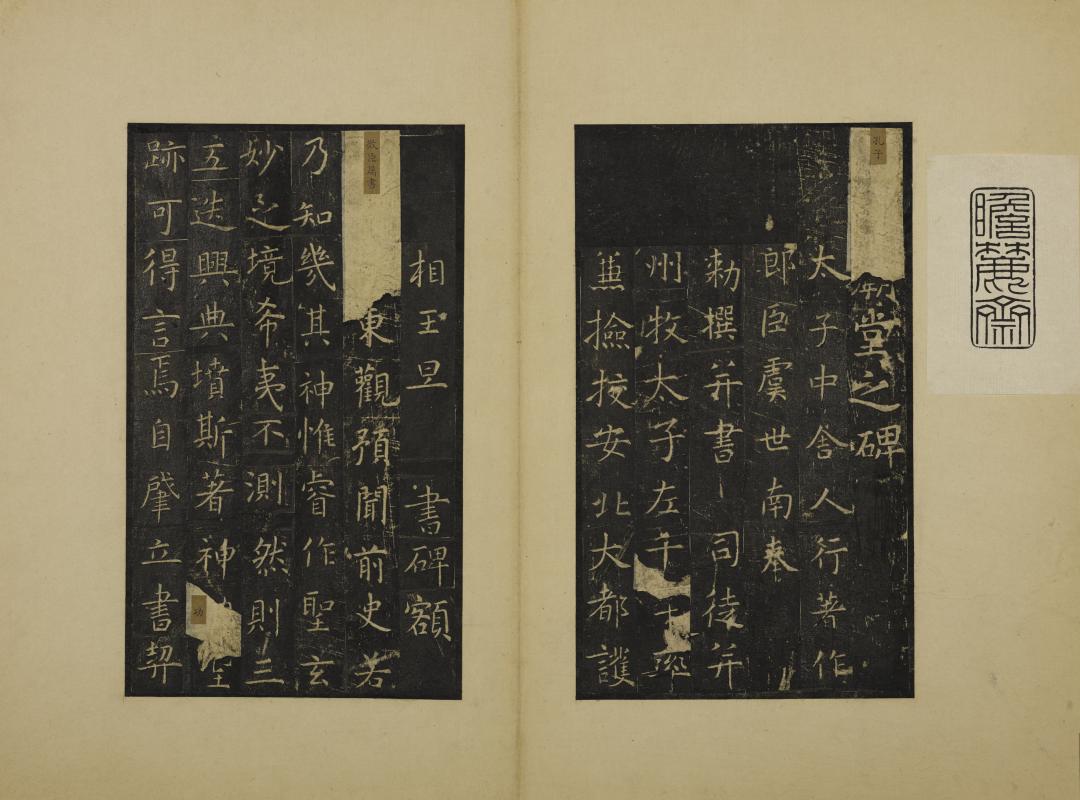 瞻麓齋
孔子
廟堂之碑
太子中舍人行著作
郎臣虞世南奉
勑撰并書 司徒并
州牧太子左千牛率
兼撿挍安北大都護
相王旦 書碑額
微臣屬書
東觀預聞前史若
乃知幾其神惟睿作聖玄
妙之境希夷不測然則三
五迭興典墳斯著神功聖
跡可得言焉自肇立書契